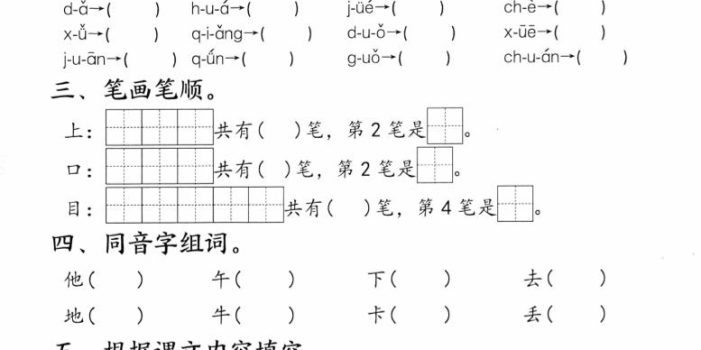 d-ǎ→( ) h-u-á→( ) j-üé→( ) ch-è→( )
x-ǔ→( ) q-i-ǎng→( ) d-u-ǒ→( ) x-üē→( )
j-u-ān→( ) q-ǘn→( ) g-uǒ→( ) ch-u-án→( )
三、笔画笔顺。
上：共有( )笔，第2笔是。
口：共有( )笔，第2笔是。
目：共有( )笔，第4笔是。
四、同音字组词。
他( ) 午( ) 下( ) 去( )
地( ) 牛( ) 卡( ) 丢( )
五、根据课文内容填空